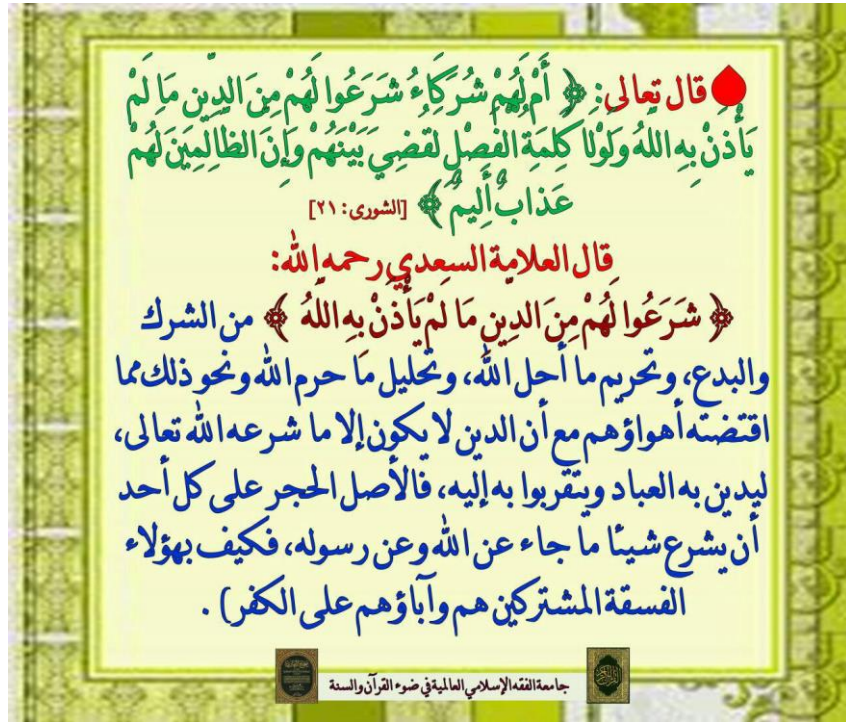 قال تعالى: ﴿ أَمْ لَهُمْ شُرَكَاءُ شَرَعُوا لَهُمْ مِنَ الدِّينِ مَا لَمْ
يَأْذَنْ بِهِ اللَّهُ وَلَوْلَا كَلِمَةُ الْفَصْلِ لَقُضِيَ بَيْنَهُمْ وَإِنَّ الظَّالِمِينَ لَهُمْ
عَذَابٌ أَلِيمٌ ﴾ [الشورى: ٢١]
قال العلامة السعدي رحمه الله:
﴿ شَرَعُوا لَهُمْ مِنَ الدِينِ مَا لَمْ يَأْذَنْ بِهِ اللَّهُ ﴾ من الشرك
والبدع، وتحريم ما أحل الله، وتحليل ما حرم الله ونحو ذلك مما
اقتضته أهواؤهم مع أن الدين لا يكون إلا ما شرعه الله تعالى،
ليدين به العباد ويتقربوا به إليه، فالأصل الحجر على كل أحد
أن يشرع شيئا ما جاء عن الله وعن رسوله، فكيف بهؤلاء
الفسقة المشتركين هم وآباؤهم على الكفر) .
جامعة الفقه الإسلامي العالمية في ضوء القرآن والسنة